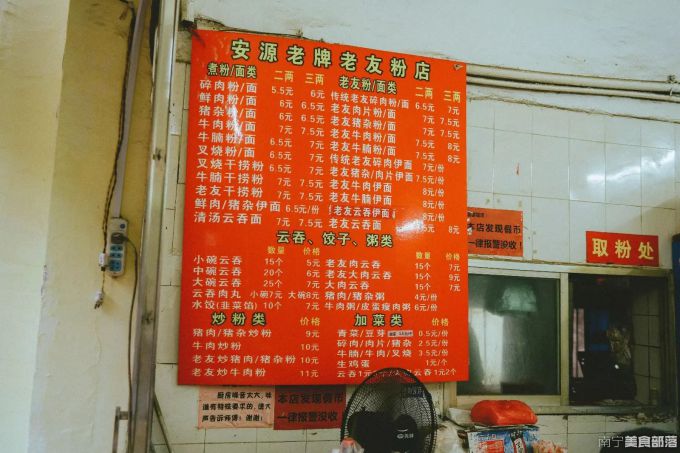 安源老牌老友粉店
煮粉/面类 二两 三两
碎肉粉/面 5.5元 6元
鲜肉粉/面 6元 6.5元
猪杂粉/面 6元 6.5元
牛肉粉/面 7元 7.5元
牛腩粉/面 6.5元 7元
叉烧粉/面 6.5元 7元
叉烧干捞粉 6.5元 7元
牛腩干捞粉 7元 7.5元
老友干捞粉 7元 7.5元
鲜肉/猪杂伊面 6.5元/份
清汤云吞面 7元 7.5元
老友粉/面类 二两 三两
传统老友碎肉粉/面 6.5元 7元
老友肉片粉/面 7元 7.5元
老友猪杂粉/面 7元 7.5元
老友牛肉粉/面 7.5元 8元
老友牛腩粉/面 7.5元 8元
传统老友碎肉伊面 7元/份
老友猪杂/肉片伊面 7.5元/份
老友牛肉伊面 8元/份
老友牛腩伊面 8元/份
老友云吞伊面 8元/份
老友云吞面 7.5元 8元
云吞、饺子、粥类
数量 价格
小碗云吞 15个 5元
中碗云吞 20个 6元
大碗云吞 25个 7元
云吞肉丸 小碗7元 大碗8元
水饺(韭菜馅) 10个 7元
数量 价格
老友肉云吞 15个 7元
老友大肉云吞 15个 9元
大肉云吞 15个 7元
猪肉/猪杂粥 4元/份
牛肉粥/皮蛋瘦肉粥 6元/份
炒粉类 价格
猪肉/猪杂炒粉 9元
牛肉炒粉 10元
老友炒猪肉/猪杂粉 10元
老友炒牛肉粉 11元
加菜类 价格
青菜/豆芽 0.5元/份
碎肉/肉片/猪杂 2.5元/份
牛腩/牛肉/叉烧 3.5元/份
生鸡蛋 1元/个
云吞1元
1元2个
本店发现假币
一律报警没收!
取粉处
厨房噪音太大,味
道有特殊要求的,请大
声告诉师傅!谢谢!
本店发现假币
一律报警没收
南宁美食部落